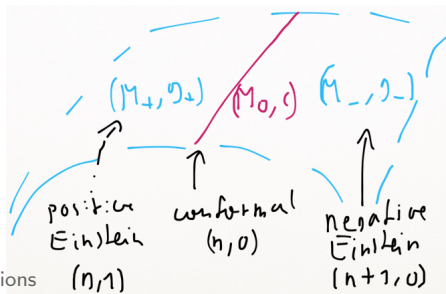 (M₊, g₊)
(M₀, c)
(M₋, g₋)
positive
Einstein
(n,1)
conformal
(n,0)
negative
Einstein
(n+1,0)
ions